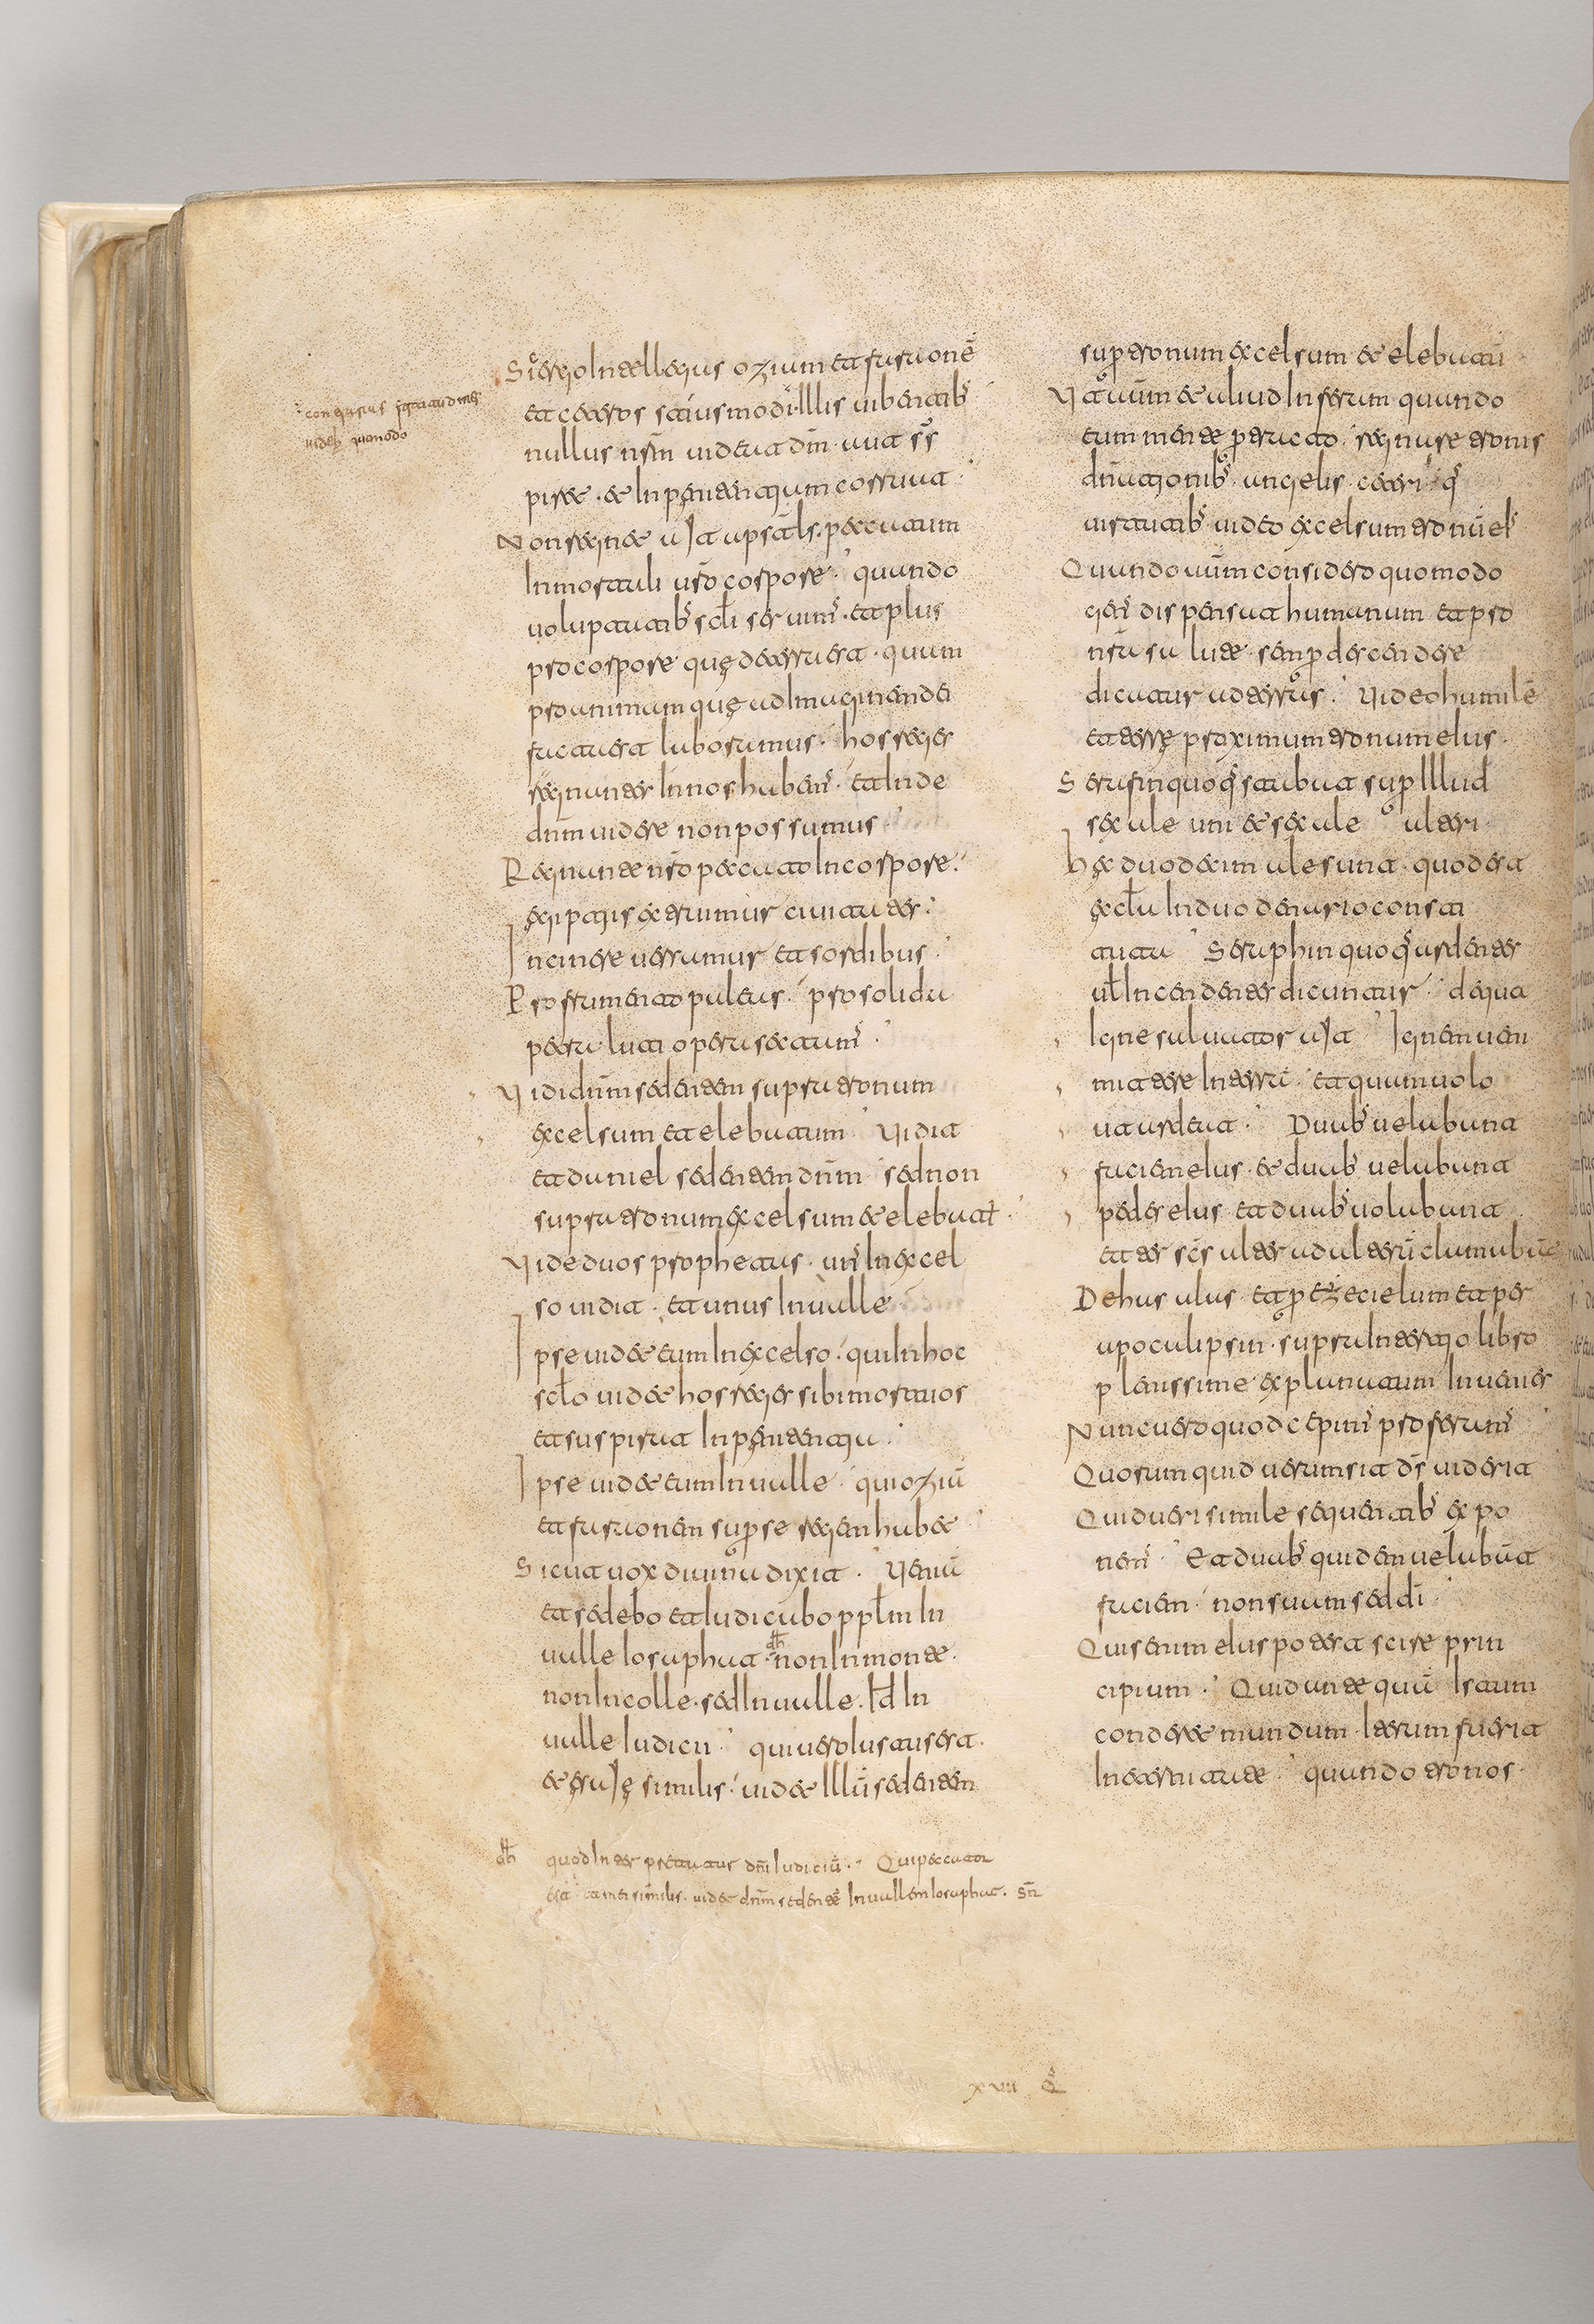 Si ergo Intellegas oziam et faraonē
et ceteros istiusmodi. Illis uibentib;
nullus nsm uidet dnm. aut sus
pirat. et In penitentiam costituta
Non regnet ait apstls. peccatum
In mortali uro corpore. quando
uoluptatib; scli seruim. et plus
pro corpore que deterra est. quam
pro anima que ad Imaginem dei
facta est laboramus. hos reges
regnantes In nos habem. et Inde
dnm uidere non possumus
Regnante nro peccato In corpore.
egiptiis extruimus ciuitates.
In cinere uersamur et sordibus.
Pro frumento paleas. pro solida
petra luti opera sectam.
Uidi dnm sedentem supra tronum
excelsum et elebatum Uidit
et daniel sedentem dnm sed non
supra tronum excelsum et elebat
Uide duos prophetas. un In excel
so uidit. et unus In ualle
Ipse uidet eum In excelso. qui In hoc
sclo uidet hos reges sibi mortuos
et suspirat In penitentia.
Ipse uidet eum In ualle. qui oziā
et faraonem super se regem habet
Sicut uox diuina dixit. Ueniā
et sedebo et Iudicabo pplm In
ualle Iosaphat. dh non In monte.
non In colle. sed In ualle. Id In
ualle Iudicii qui uero Iustus est.
et esaie similis. uidet Illū sedentem
dh quod Interpretatur dni Iudiciū. Qui peccator
est et mei similis. uidet dnm sedente In uallem Iosaphat. sr
super tronum excelsum et elebatū
Uatum et aliud Inferum quando
eum mente pertracto. regnare tronis
dnationib; angelis. ceteri q
uirtutib; uideo excelsum tronū eI
Quando aūm considero quomodo
gen dispensat humanum et pro
nra salute semper descendere
dicatur ad terras. Uideo humilē
et terre proximum tronum eIus.
Serafin quoq stabat super Illud
sex ale uni et sex ale alteri.
hec duodecim ale sunt. quod est
excla In duodenario consti
tuta Seraphin quoq; ardentes
ul Incendentes dicuntur. de qua
Igne saluator ait Ignem ueni
mittere In terrā. et quam uolo
ut ardeat. Duab; uelabant
faciem eIus. et duab; uelabant
pedes eIus et duab; uolabant
et ter scs alter ad alterū clamabāt
De has alas et per ezecielum et per
apocalipsin. supra In tertio libro
plenissime explanatum Inuenies
Nunc uero quod cepim proseram
Quorum quid uerum sit ds uiderit
Quid ueri simile sequentib; expo
nem. Et duab; quidem uelabāt
faciem non suum sed di
Quis enim eIus poterit scire prin
cipium. Quid ante quā Istum
conderet mundum. Iterum fuerit
In eternitate. quando tronos.
xuii Q